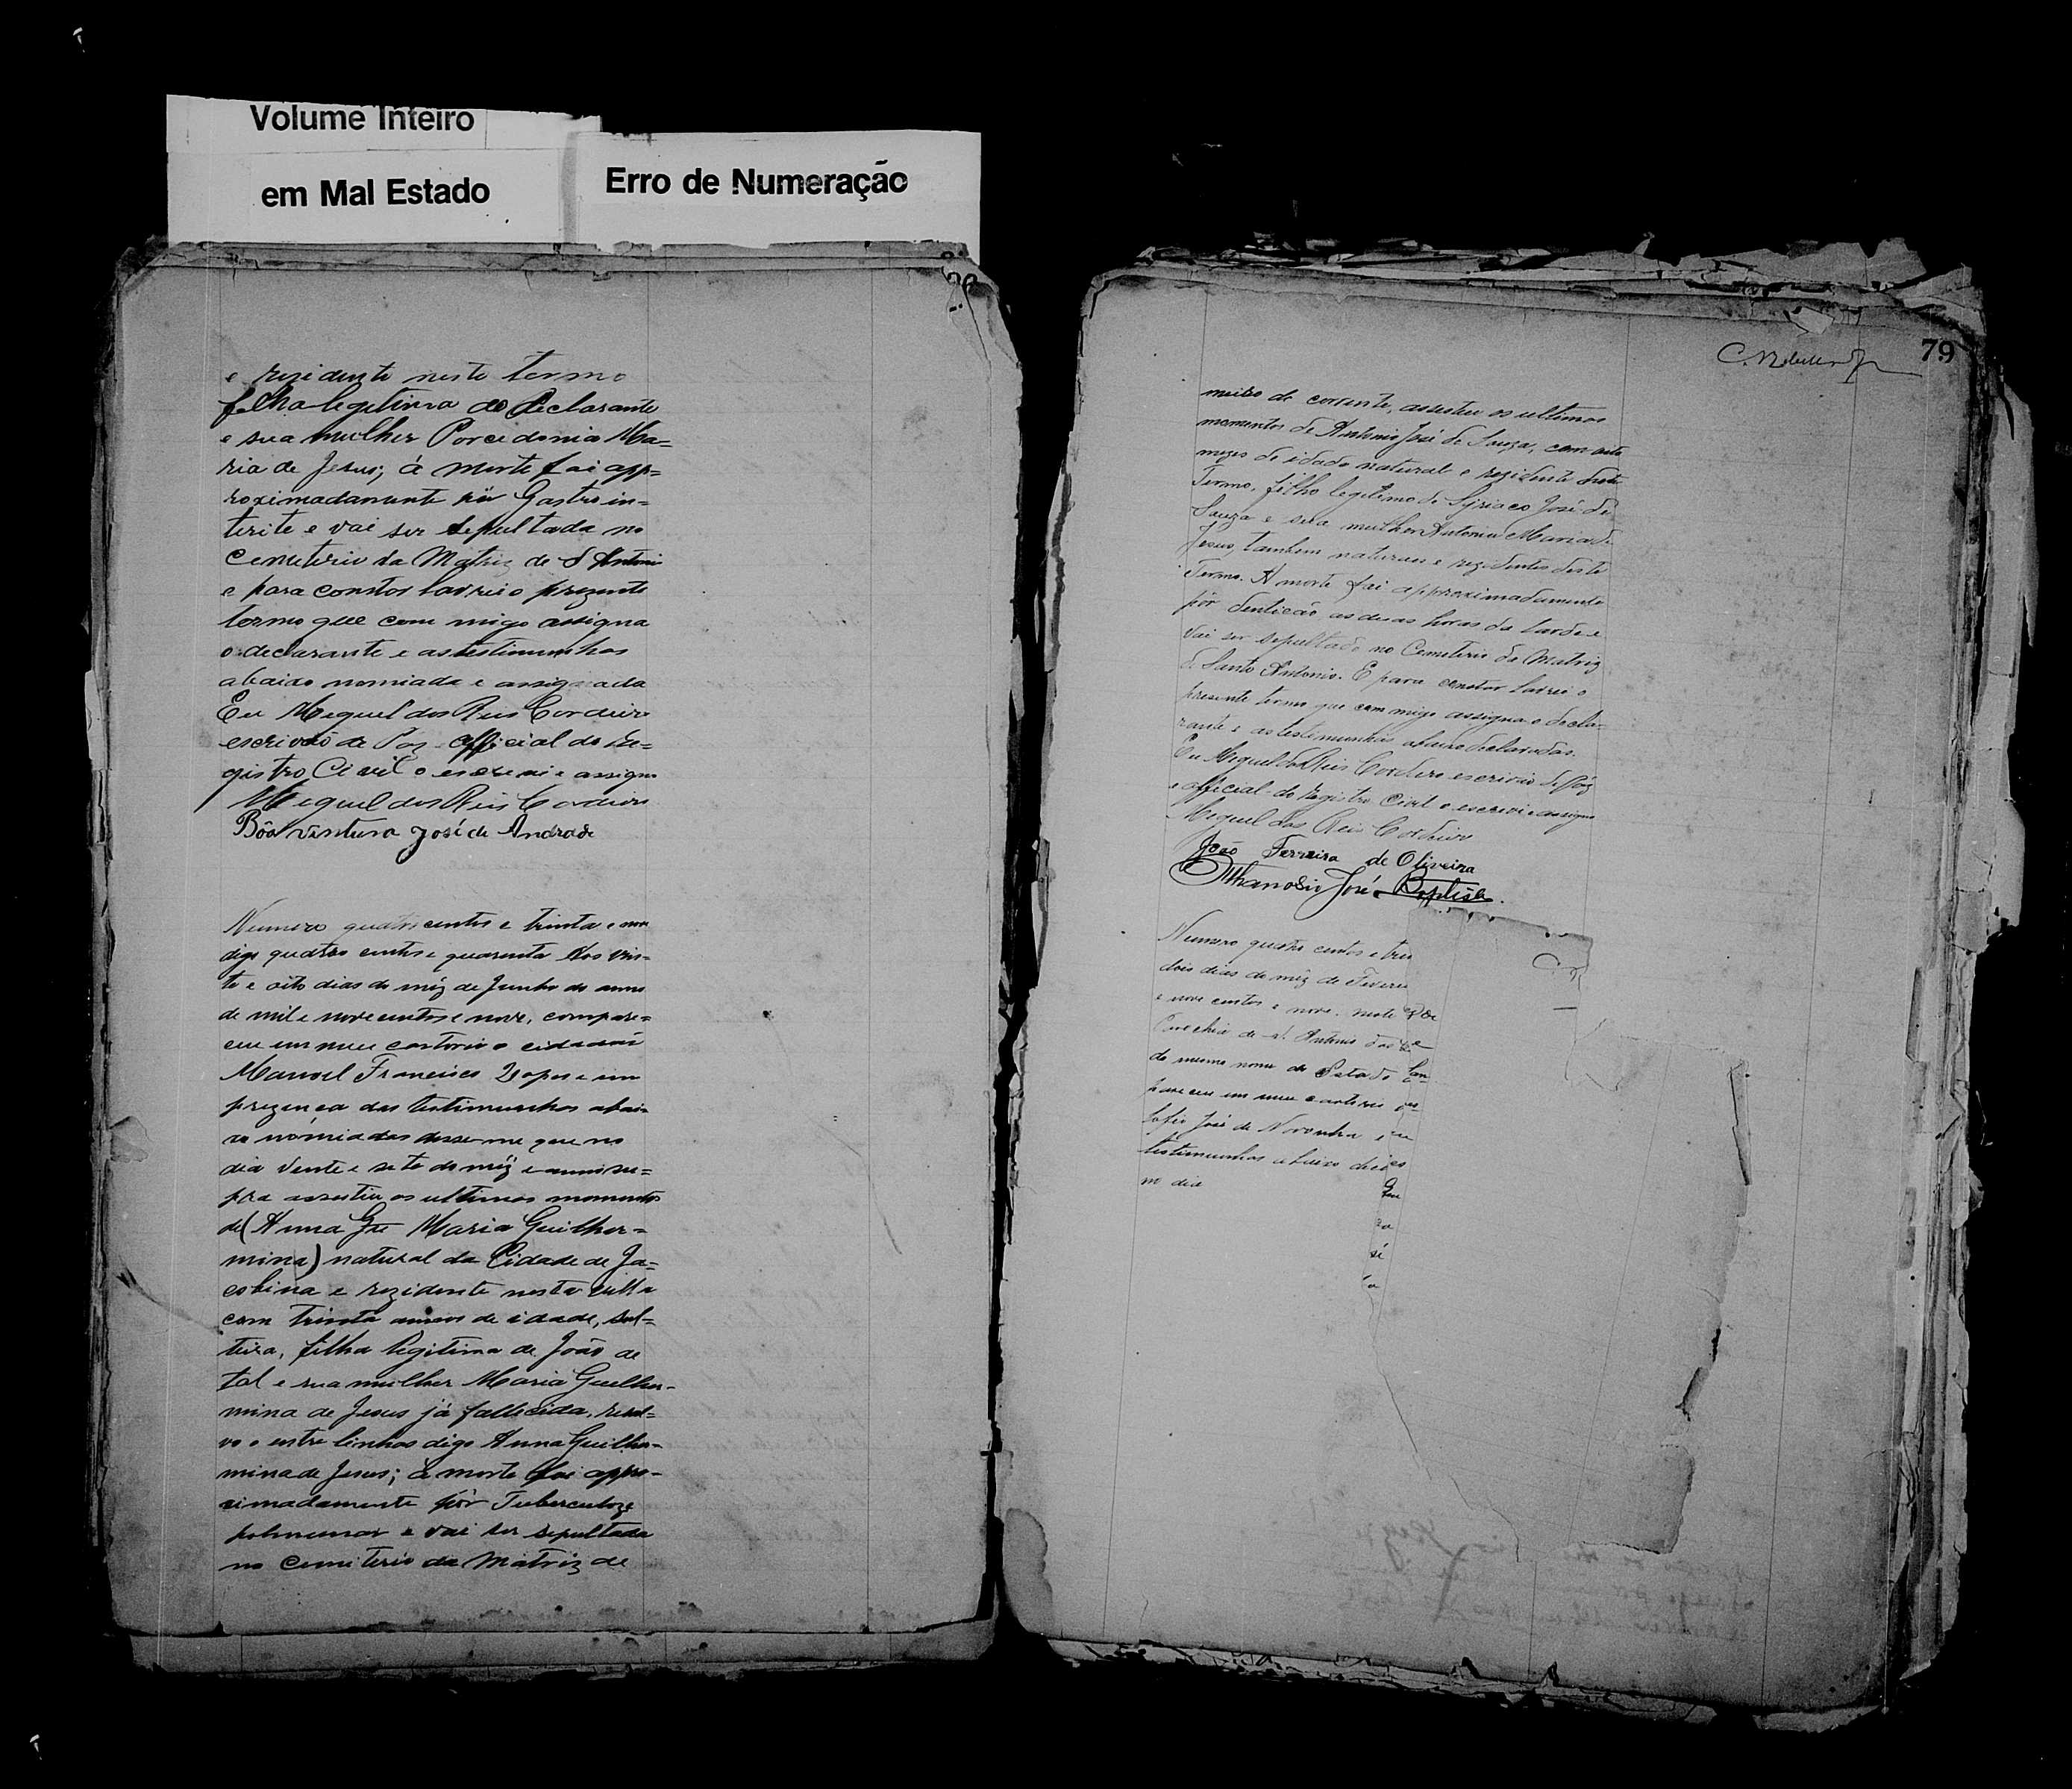 Volume Inteiro
em Mal Estado
Erro de Numeração
e rezidente neste termo
filha legitima do Declarante
e sua mulher Porcedonia Ma=
ria de Jesus; á morte foi app=
roximadamente pôr Gastro in=
terite e vai ser sepultada no
Cemeterio da Matriz de S Antoni
e para constar lavrei o prezente
termo que com migo assigna
o declarante e as testimunhas
abaixo nomiada e assignada
Eu Miguel dos Reis Cordeiro
escrivão de Paz official do Re=
gistro Civil o escrevi e assigno
Miguel dos Reis Cordeiro
Bôaventura José de Andrade
Numero quatro centos e trinta e nove
digo quatro centos e quarenta Aos vin=
te e oito dias do mêz de Junho do anno
de mil e nove centos e nove, compare=
ceu em meu cartorio o cidadão
Manoel Francisco Lopes e em
prezença das testimunhas abai=
xo nómiadas disse me que no
dia vente e sete do mêz e anno su=
pra assestiu os ultimos momentos
de (Anna Maria Guilher=
mina) natural da Cidade de Ja=
cobina e rezidente nesta villa
com trinta annos de idade, sol=
teira, filha legitima de João de
tal e sua mulher Maria Guilher=
mina de Jesus já fallecida, resal=
vo o entre linhas digo Anna Guilher=
mina de Jesus; á morte foi appro=
ximadamente pôr Tuberculoze
polmunar e vai ser sepultada
no Cemiterio da Matriz de
79
meiro do corrente, assestiu os ultimos
momentos de Antonio José de Souza, com oito
mezes de idade natural e rezidente deste
Termo, filho legitimo de Syriaco José de
Souza e sua mulher Antonia Maria de
Jesus, tambem naturaes e rezidentes deste
Termo. A morte foi approximadamente
pôr dentição as duas horas da tarde e
vai ser sepultado no Cemeterio da Matriz
de Santo Antonio. E para constar lavrei o
presente termo que com migo assigna o decla-
rante e as testemunhas abaixo declaradas.
Eu Miguel dos Reis Cordeiro escrivão de Páz
e official do registro Civil o escrevi e assigno
Miguel dos Reis Cordeiro
João Ferreira de Oliveira
Athanosio José Baptista.
Numero quatro centos e trin
dois dias do mêz de Fevere
e nove centos e nove. neste
Parochia de S. Antonio das
do mesmo nome do Estado
pareceu em meu cartorio
José de Noronha
testimunhas abaixo
no dia